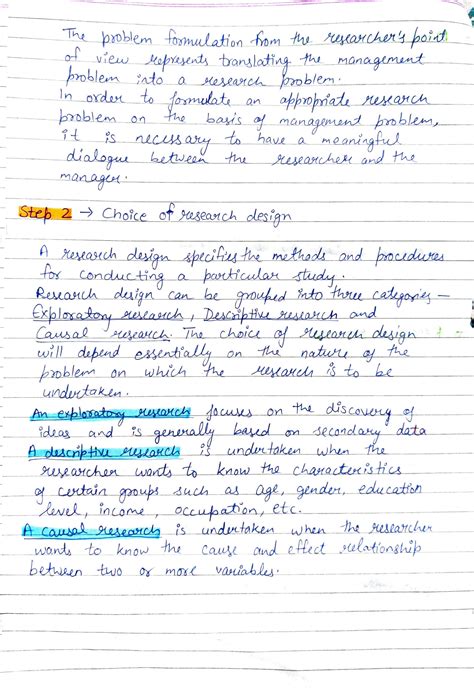 The problem formulation from the researcher's point
of view represents translating the management
problem into a research problem.
In order to formulate an appropriate research
problem on the basis of management problem,
it is necessary to have a meaningful
dialogue between the researcher and the
manager.
Step 2 → Choice of research design
A research design specifies the methods and procedures
for conducting a particular study.
Research design can be grouped into three categories —
Exploratory research, Descriptive research and
Causal research. The choice of research design
will depend essentially on the nature of the
problem on which the research is to be
undertaken.
An exploratory research focuses on the discovery of
ideas and is generally based on secondary data
A descriptive research is undertaken when the
researcher wants to know the characteristics
of certain groups such as age, gender, education
level, income, occupation, etc.
A causal research is undertaken when the researcher
wants to know the cause and effect relationship
between two or more variables.